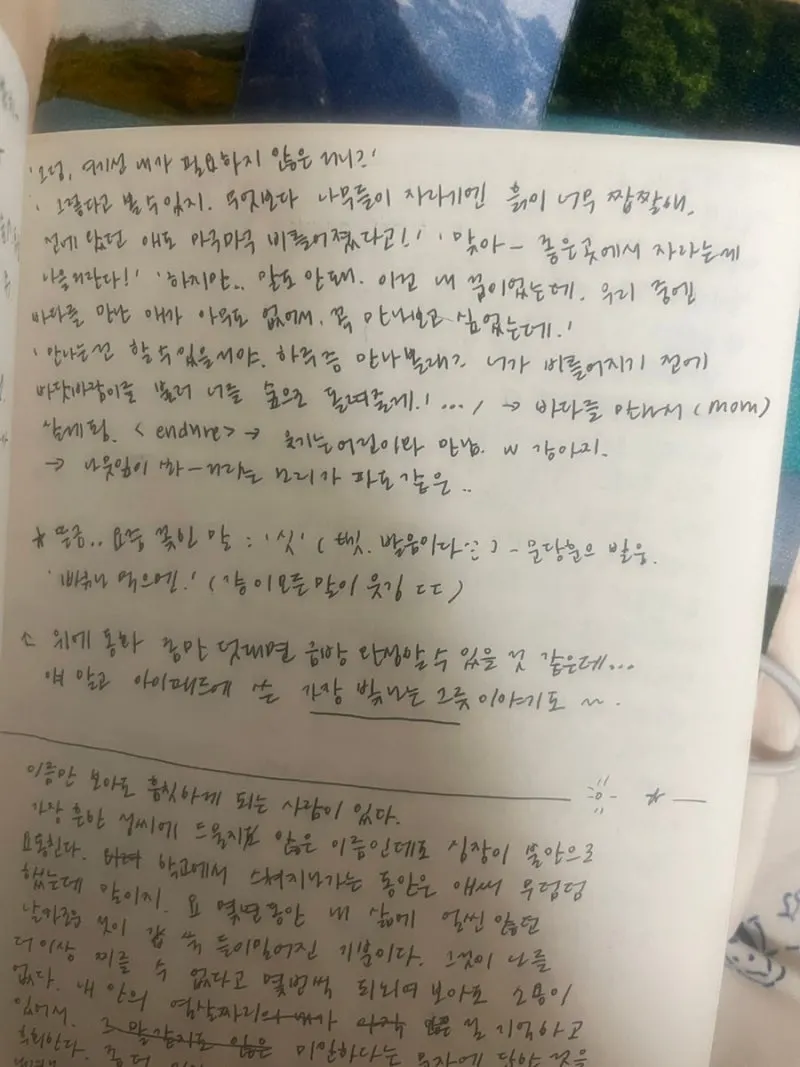 '그럼, 예선 내가 필요하지 않은 거니?'
'그렇다고 볼 수 있지. 무엇보다 나무들이 자라기엔 흙이 너무 짭짤해.
전에 왔던 애도 마구마구 비틀어졌다고!' '맞아— 좋은 곳에서 자라는게
나을거란다!' '하지만.. 말도 안돼. 이건 내 꿈이었는데. 우리 중엔
바다를 만난 애가 아무도 없어서, 꼭 만나보고 싶었는데.'
'만나는건 할 수 있을거야. 하루종 만나볼래? 너가 비틀어지기 전에
바닷바람이를 불러 너를 숲으로 돌려줄게.' ... / → 바다를 만나서 (mom)
살게 됨. <endure> → 웃기는 어린이와 만남. w 강아지.
→ 나뭇잎이 '솨—'거리는 소리가 파도 같은..
* 뜬금.. 요즘 꽂힌 말 : '싯' (발음이다) - 문당훈으 발음.
먹으엔.' (이 모든 말이 웃김 ㄷㄷ)
위에 동화 좀만 덧대면 금방 완성할 수 있을 것 같은데...
얘 말고 아이패드에 쓴 가장 빛나는 그릇 이야기도 ~.
이름만 보아도 흠칫하게 되는 사람이 있다.
가장 흔한 성씨에 드물지도 않은 이름인데도 심장이 불안으로
요동친다. 학교에서 스쳐지나가는 동안은 애써 무덤덤
했는데 말이지. 요 몇년동안 내 삶에 없던
날카로운 것이 갑 쑥 들이밀어진 기분이다. 그것이 나를
더 이상 찌를 수 없다고 몇번씩 되뇌여 보아도 소용이
없다. 내 안의 열살짜리가 아직 널 기억하고
있어서. 미안하다는 문자에 답한 것을
후회한다. 좀 더